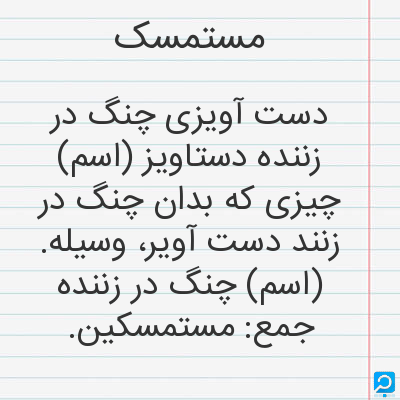 مستمسک
دست آویزی چنگ در
زننده دستاویز (اسم)
چیزی که بدان چنگ در
زنند دست آویر، وسیله.
(اسم) چنگ در زننده
جمع: مستمسکین.